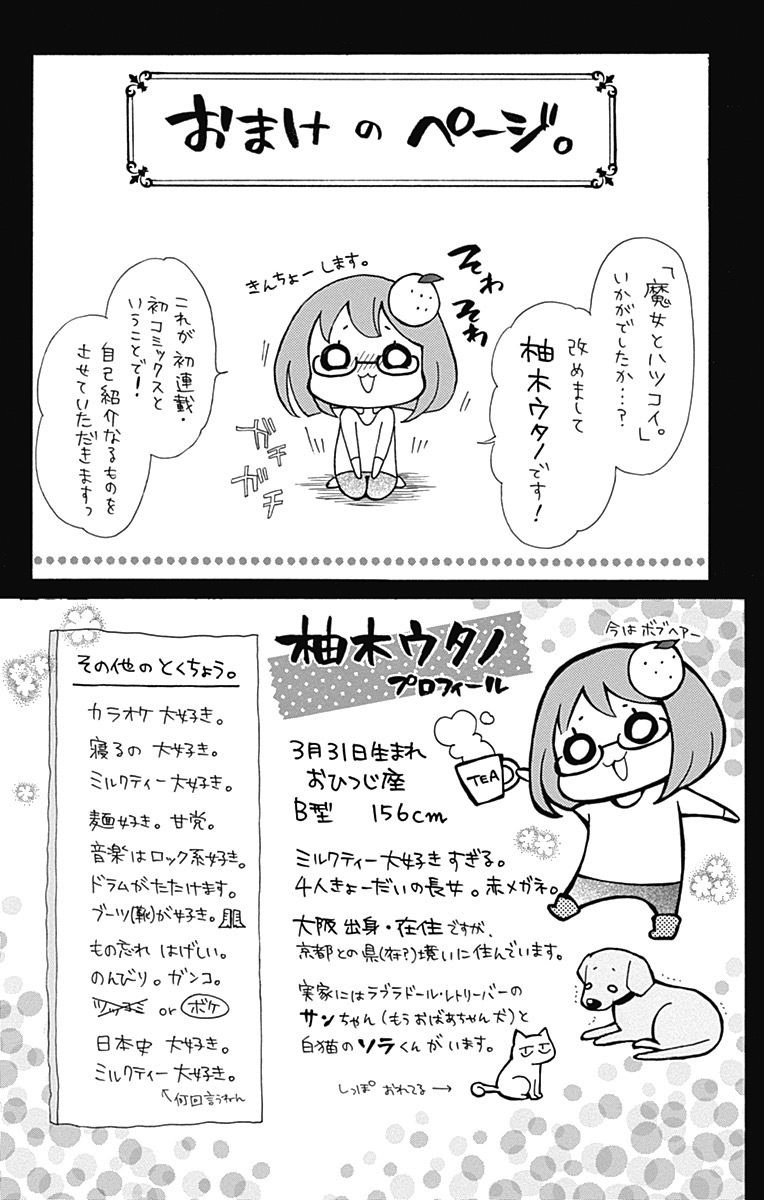 おまけのページ。
「魔女とハツコイ。」
いかがでしたか…?
改めまして
柚木ウタノです!
そわ
そわ
きんちょーします。
ガチ
ガチ
これが初連載・
初コミックスと
いうことで!
自己紹介なるものを
させていただきますっ
柚木ウタノ
プロフィール
今はボブヘアー
TEA
3月31日生まれ
おひつじ座
B型 156cm
ミルクティー大好きすぎる。
4人きょーだいの長女。赤メガネ。
大阪出身・在住ですが、
京都との県(府?)境いに住んでいます。
実家にはラブラドール・レトリーバーの
サンちゃん(もうおばあちゃん犬)と
白猫のソラくんがいます。
しっぽ おれてる→
その他のとくちょう。
カラオケ 大好き。
寝るの 大好き。
ミルクティー大好き。
麺好き。甘党。
音楽はロック系好き。
ドラムがたたけます。
ブーツ(靴)が好き。
もの忘れ はげしい。
のんびり。ガンコ。
ツッコミ or ボケ
日本史 大好き。
ミルクティー大好き。
↖何回言うねん